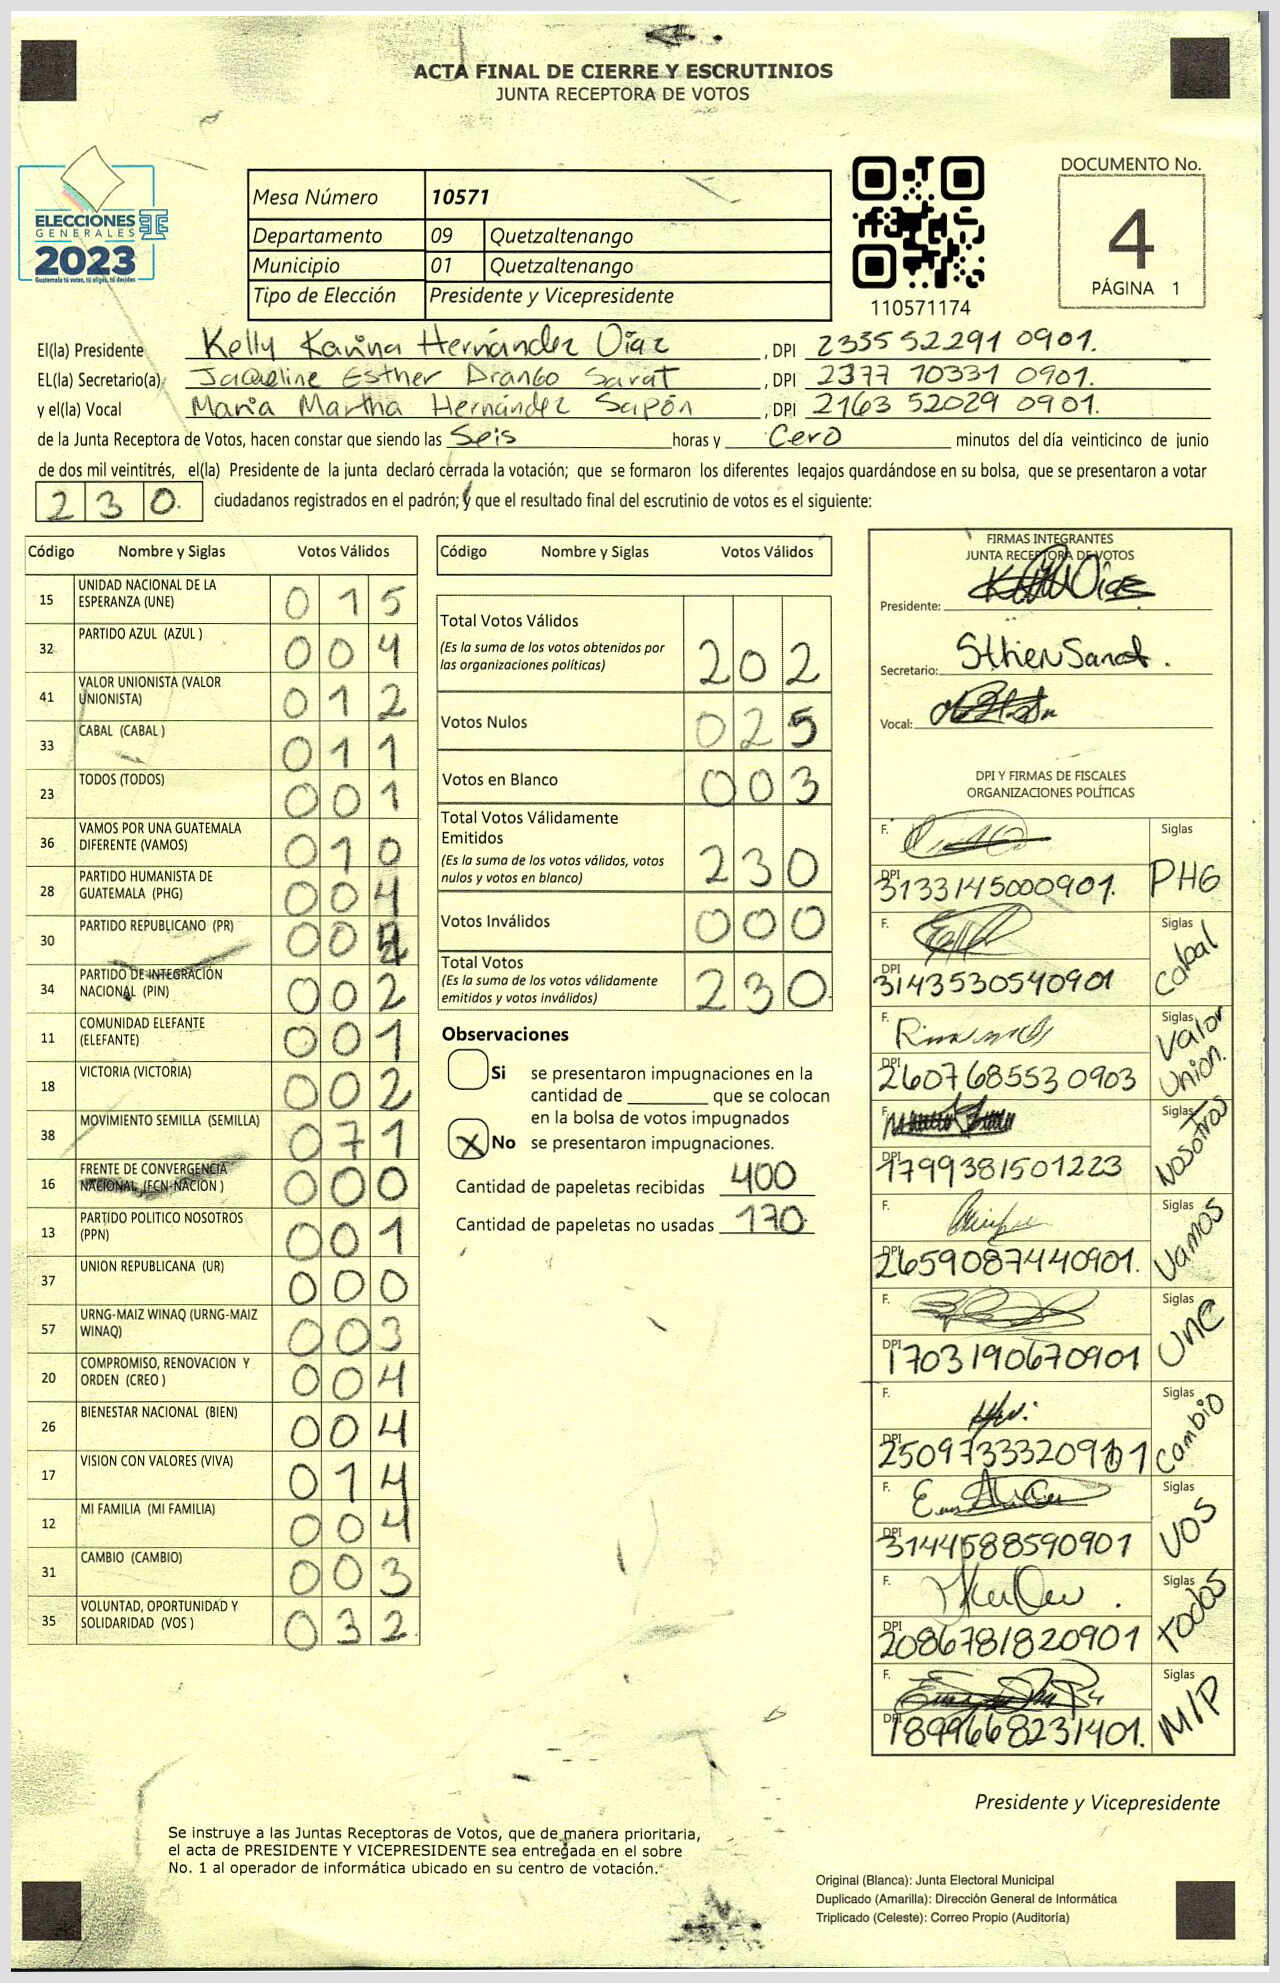 ACTA FINAL DE CIERRE Y ESCRUTINIOS
JUNTA RECEPTORA DE VOTOS
ELECCIONES
GENERALES
2023
Guatemala tú votas, tú eliges, tú decides
Mesa Número 10571
Departamento 09 Quetzaltenango
Municipio 01 Quetzaltenango
Tipo de Elección Presidente y Vicepresidente
110571174
DOCUMENTO No.
4
PÁGINA 1
El(la) Presidente Kelly Karina Hernández Díaz, DPI 2335 52291 0901.
EL(la) Secretario(a) Jaqueline Esther Drango Sarat, DPI 2377 10331 0901.
y el(la) Vocal Maria Martha Hernández Sapón, DPI 2163 52029 0901.
de la Junta Receptora de Votos, hacen constar que siendo las Seis horas y Cero minutos del día veinticinco de junio
de dos mil veintitrés, el(la) Presidente de la junta declaró cerrada la votación; que se formaron los diferentes legajos quardándose en su bolsa, que se presentaron a votar
230. ciudadanos registrados en el padrón; y que el resultado final del escrutinio de votos es el siguiente:
Código Nombre y Siglas Votos Válidos
15 UNIDAD NACIONAL DE LA ESPERANZA (UNE) 015
32 PARTIDO AZUL (AZUL ) 004
41 VALOR UNIONISTA (VALOR UNIONISTA) 012
33 CABAL (CABAL ) 011
23 TODOS (TODOS) 001
36 VAMOS POR UNA GUATEMALA DIFERENTE (VAMOS) 010
28 PARTIDO HUMANISTA DE GUATEMALA (PHG) 004
30 PARTIDO REPUBLICANO (PR) 004
34 PARTIDO DE INTEGRACIÓN NACIONAL (PIN) 002
11 COMUNIDAD ELEFANTE (ELEFANTE) 001
18 VICTORIA (VICTORIA) 002
38 MOVIMIENTO SEMILLA (SEMILLA) 071
16 FRENTE DE CONVERGENCIA NACIONAL (FCN-NACION ) 000
13 PARTIDO POLITICO NOSOTROS (PPN) 001
37 UNION REPUBLICANA (UR) 000
57 URNG-MAIZ WINAQ (URNG-MAIZ WINAQ) 003
20 COMPROMISO, RENOVACION Y ORDEN (CREO ) 004
26 BIENESTAR NACIONAL (BIEN) 004
17 VISION CON VALORES (VIVA) 014
12 MI FAMILIA (MI FAMILIA) 004
31 CAMBIO (CAMBIO) 003
35 VOLUNTAD, OPORTUNIDAD Y SOLIDARIDAD (VOS ) 032
Código Nombre y Siglas Votos Válidos
Total Votos Válidos 202
(Es la suma de los votos obtenidos por
las organizaciones políticas)
Votos Nulos 025
Votos en Blanco 003
Total Votos Válidamente
Emitidos 230
(Es la suma de los votos válidos, votos
nulos y votos en blanco)
Votos Inválidos 000
Total Votos 230
(Es la suma de los votos válidamente
emitidos y votos inválidos)
Observaciones
Si se presentaron impugnaciones en la
cantidad de ________ que se colocan
en la bolsa de votos impugnados
X No se presentaron impugnaciones.
Cantidad de papeletas recibidas 400
Cantidad de papeletas no usadas 170
FIRMAS INTEGRANTES
JUNTA RECEPTORA DE VOTOS
Presidente:
Secretario:
Vocal:
DPI Y FIRMAS DE FISCALES
ORGANIZACIONES POLÍTICAS
F. Siglas
DPI 3133145000901. PHG
F. Siglas
DPI 3143530540901 Cabal
F. Siglas
DPI 2607685530903 Valor Union.
F. Siglas
DPI 1799381501223 Nosotros
F. Siglas
DPI 2659087440901. Vamos
F. Siglas
DPI 1703190670901 UNE
F. Siglas
DPI Cambio
F. Siglas
DPI 3144588590901 VOS
F. Siglas
DPI 2086781820901 TODOS
F. Siglas
DPI 1899668231401. MLP
Presidente y Vicepresidente
Se instruye a las Juntas Receptoras de Votos, que de manera prioritaria,
el acta de PRESIDENTE Y VICEPRESIDENTE sea entregada en el sobre
No. 1 al operador de informática ubicado en su centro de votación.
Original (Blanca): Junta Electoral Municipal
Duplicado (Amarilla): Dirección General de Informática
Triplicado (Celeste): Correo Propio (Auditoría)